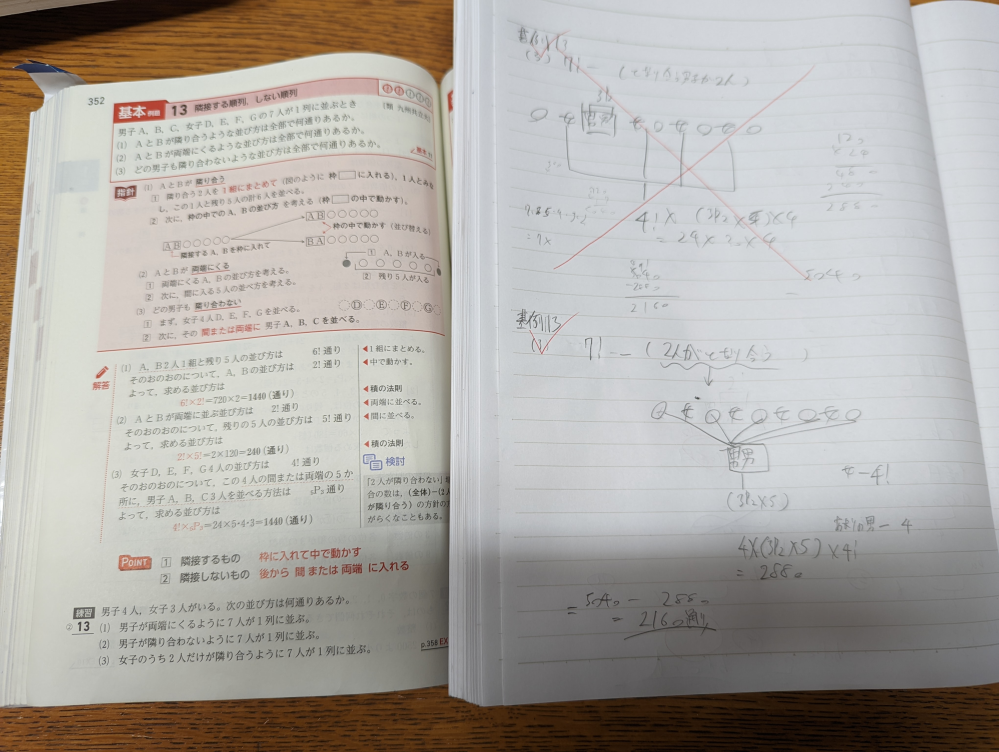 352
基本 例題 13 隣接する順列,しない順列
男子A, B, C, 女子D, E, F, Gの7人が1列に並ぶとき
(1) AとBが隣り合うような並び方は全部で何通りあるか。
(2) AとBが両端にくるような並び方は全部で何通りあるか。
(3) どの男子も隣り合わないような並び方は全部で何通りあるか。
指針
(1) AとBが 隣り合う
1 隣り合う2人を1組にまとめて(図のように 枠□に入れる),1人とみな
し,この1人と残り5人の計6人を並べる。
2 次に,枠の中でのA, Bの並び方 を考える(枠□の中で動かす)。
AB○○○○○
AB○○○○○
枠の中で動かす(並び替える)
BA○○○○○
隣接するA, Bを枠に入れて
(2) AとBが 両端にくる
1 両端にくるA, Bの並び方を考える。
2 次に,間に入る5人の並べ方を考える。
1 A, Bが入る
2 残り5人が入る
(3) どの男子も 隣り合わない
1 まず,女子4人D, E, F, Gを並べる。
2 次に,その 間または両端に 男子A, B, Cを並べる。
○D○E○F○G○
解答
(1) A, B2人1組と残り5人の並び方は 6!通り
そのおのおのについて,A, Bの並び方は 2!通り
よって,求める並び方は
6!×2!=720×2=1440(通り)
(2) AとBが両端に並ぶ並び方は 2!通り
そのおのおのについて,残りの5人の並び方は 5!通り
よって,求める並び方は
2!×5!=2×120=240(通り)
(3) 女子D, E, F, G4人の並び方は 4!通り
そのおのおのについて,この4人の間または両端の5か
所に,男子A, B, C3人を並べる方法は ₅P₃通り
よって,求める並び方は
4!×₅P₃=24×5・4・3=1440(通り)
◀1組にまとめる。
◀中で動かす。
◀積の法則
◀両端に並べる。
◀間に並べる。
◀積の法則
検討
「2人が隣り合わない」
合の数は,(全体)−(2人
が隣り合う)の方針の方
がらくなこともある。
POINT
1 隣接するもの 枠に入れて中で動かす
2 隣接しないもの 後から 間 または 両端 に入れる
練習
13
男子4人,女子3人がいる。次の並び方は何通りあるか。
(1) 男子が両端にくるように7人が1列に並ぶ。
(2) 男子が隣り合わないように7人が1列に並ぶ。
(3) 女子のうち2人だけが隣り合うように7人が1列に並ぶ。
p.358 EX
(3) 7! −
4! × (3P2 ×
= 24 ×
5040
2880
2160
基例13
7! −− (2人がとなり合う )
男男
(3P2×5)
女−4!
4×(3P2×5)×4!
= 2880
= 5040 − 2880
= 2160通り